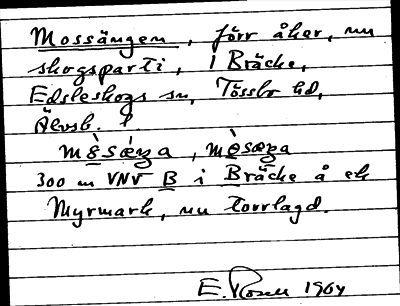 Mossängen, förr åker, nu
skogsparti, 1 Bräcke,
Edsleskogs sn, Tössbo hd,
Älvsb. l
300 m VNV B i Bräcke å ek
Myrmark, nu torrlagd.
E. Rosell 1964